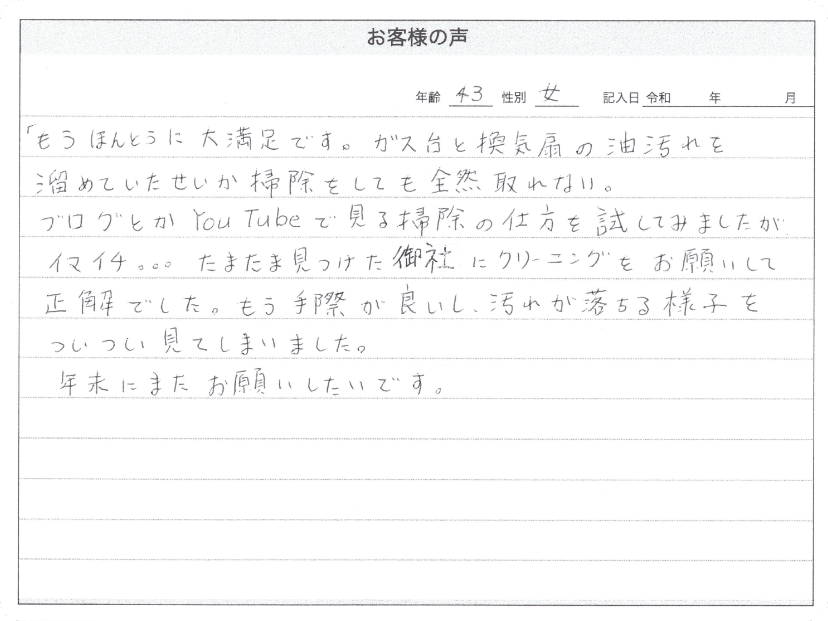 お客様の声
年齢 43 性別 女 記入日 令和 年 月
「もうほんとうに大満足です。ガス台と換気扇の油汚れを
溜めていたせいか掃除をしても全然取れない。
ブログとかYouTubeで見る掃除の仕方を試してみましたが
イマイチ。。。たまたま見つけた御社にクリーニングをお願いして
正解でした。もう手際が良いし、汚れが落ちる様子を
ついつい見てしまいました。
年末にまたお願いしたいです。